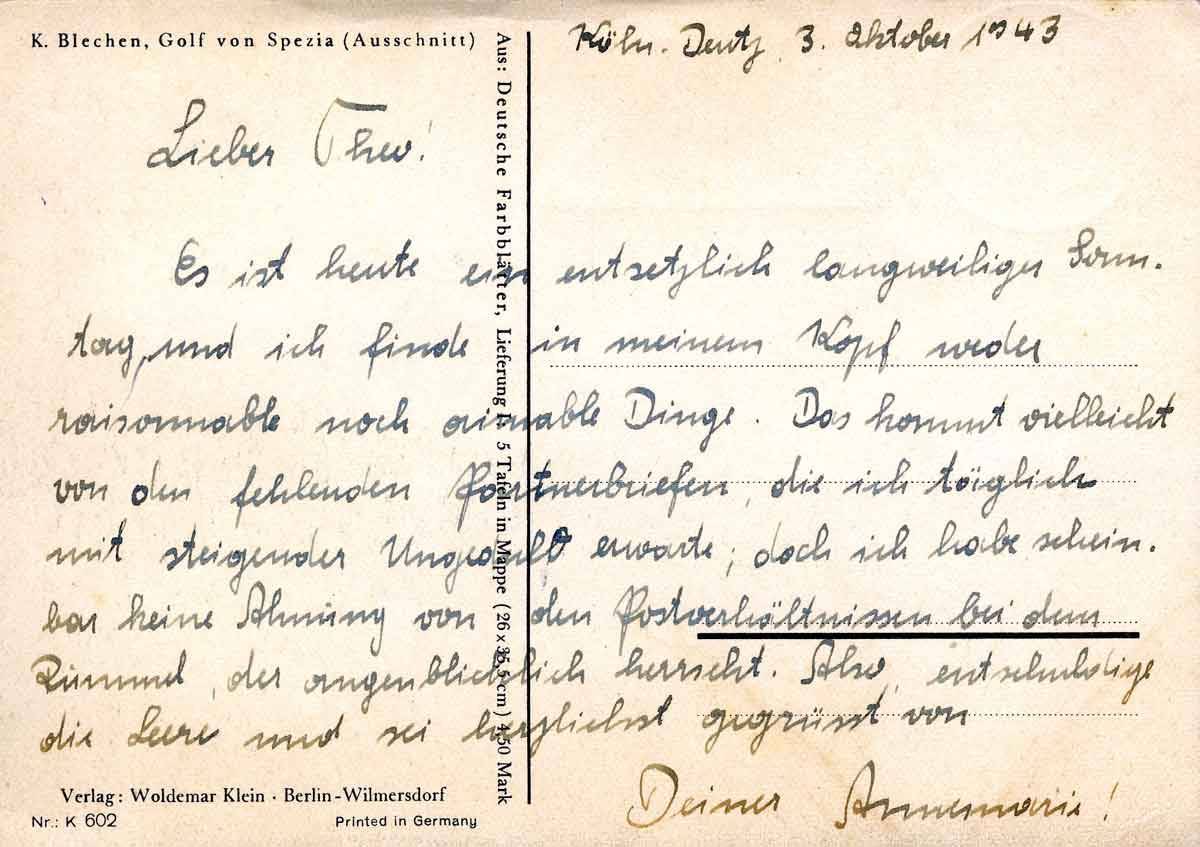 K. Blechen, Golf von Spezia (Ausschnitt)
Köln-Deutz, 3. Oktober 1943
Lieber Theo!
Es ist heute ein entsetzlich langweiliger Sonn-
tag, und ich finde in meinem Kopf weder
raisonnable noch aimable Dinge. Das kommt vielleicht
von den fehlenden Partnerbriefen, die ich täglich
mit steigender Ungeduld erwarte; doch ich habe schein-
bar keine Ahnung von den Postverhältnissen bei dem
Rummel, der augenblicklich herrscht. Also, entschuldige
die Leere und sei herzlichst gegrüsst von
Deiner Annemarie!
Aus: Deutsche Farbblätter, Lieferung I: 5 Tafeln in Mappe (26 x 36,5 cm) 4,50 Mark
Verlag: Woldemar Klein · Berlin-Wilmersdorf
Nr.: K 602 Printed in Germany